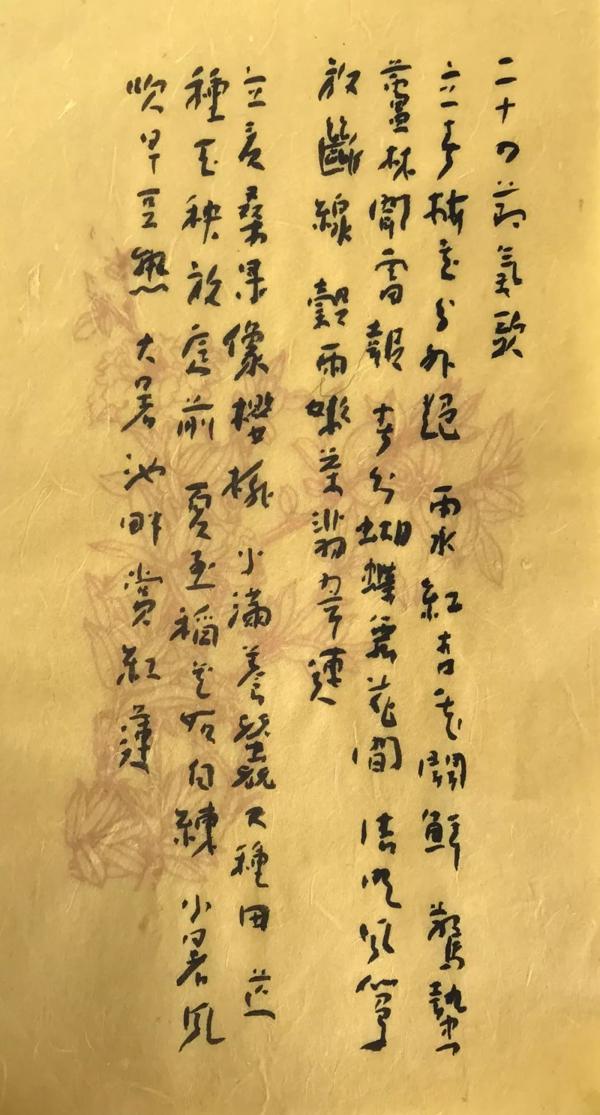 二十四節氣歌
立春梅花分外艷 雨水紅杏花開鮮 驚蟄
蘆林聞雷報 春分蝴蝶舞花間 清明風箏
放斷線 穀雨嫩茶翡翠連
立夏桑果像櫻桃 小滿養蠶又種田 芒
種玉秧放庭前 夏至稻花如白練 小暑風
吹早豆熟 大暑池畔賞紅蓮